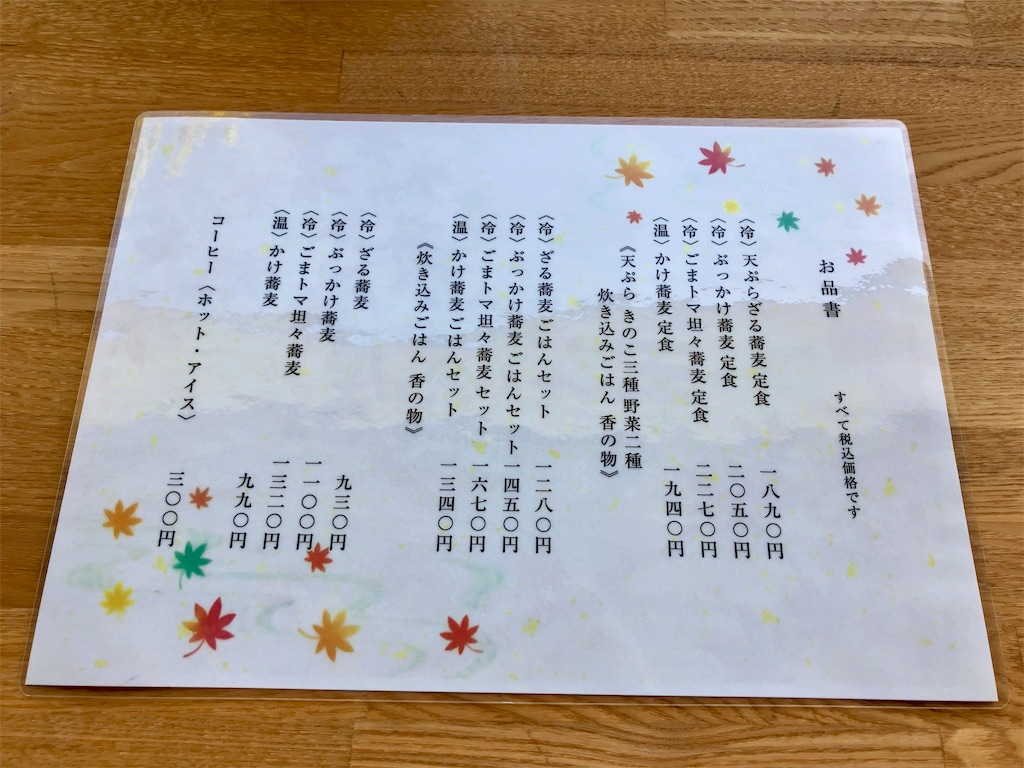 お品書
すべて税込価格です
〈冷〉天ぷらざる蕎麦 定食 一八九〇円
〈冷〉ぶっかけ蕎麦 定食 二〇五〇円
〈冷〉ごまトマ坦々蕎麦 定食 二二七〇円
〈温〉かけ蕎麦 定食 一九四〇円
《天ぷら きのこ三種 野菜二種
炊き込みごはん 香の物》
〈冷〉ざる蕎麦 ごはんセット 一二八〇円
〈冷〉ぶっかけ蕎麦 ごはんセット 一四五〇円
〈冷〉ごまトマ坦々蕎麦 セット 一六七〇円
〈温〉かけ蕎麦 ごはんセット 一三四〇円
《炊き込みごはん 香の物》
〈冷〉ざる蕎麦 九三〇円
〈冷〉ぶっかけ蕎麦 一一〇〇円
〈冷〉ごまトマ坦々蕎麦 一三二〇円
〈温〉かけ蕎麦 九九〇円
コーヒー〈ホット・アイス〉 三〇〇円